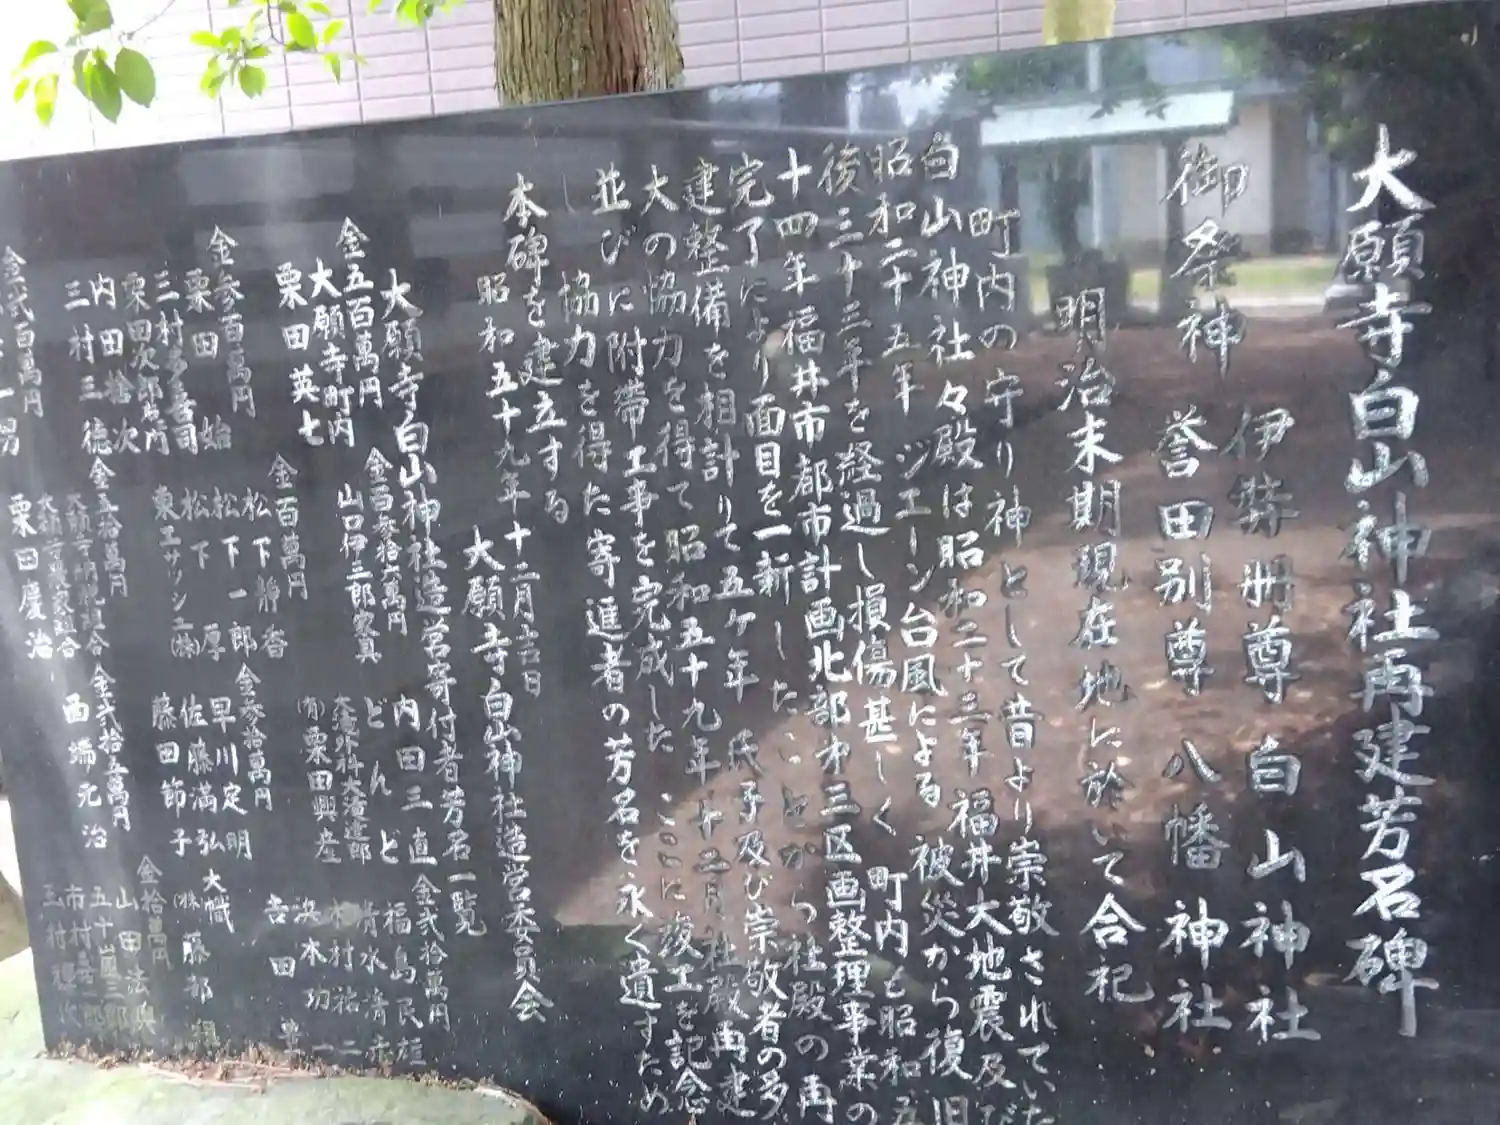 大願寺白山神社再建芳名碑
御祭神 伊弉册尊 白山神社
誉田別尊 八幡神社
明治末期現在地に於いて合祀
町内の守り神として昔より崇敬されていた
白山神社々殿は昭和二十三年福井大地震及び
昭和二十五年ジエーン台風による被災から復旧
後三十三年を経過し損傷甚しく町内も昭和五
十四年福井市都市計画北部才三区画整理事業の
完了により面目を一新したことから社殿の再
建整備を相計りて五ケ年氏子及び崇敬者の多
大の協力を得て昭和五十九年十二月社殿再建
並びに附帯工事を完成したここに竣工を記念
し協力を得た寄進者の芳名を永く遺すため
本碑を建立する
昭和五十九年十二月吉日
大願寺白山神社造営委員会
大願寺白山神社造営寄付者芳名一覧
金五百萬円
大願寺町内
栗田英七
金参百萬円
栗田 始
三村多喜司
栗田次郎左ヱ門
内田捨次
三村三徳
金弐百萬円
金百参拾六萬円
山口伊三郎家具
金百萬円
松下静香
松下一郎
松下 厚
東エサッシ工(株)
金五拾萬円
栗田慶治
内田三直
どんど
大滝外科大滝達郎
(有)栗田興産
金参拾萬円
早川定明
佐藤満弘
藤田節子
金弐拾五萬円
西端元治
金弐拾萬円
福島民雄
清水清赤
木村祐二
浜本功一
吉田専
大幟
(株)藤部組
金拾萬円
山田法興
五十嵐三郎
市村喜一郎
玉村輝次